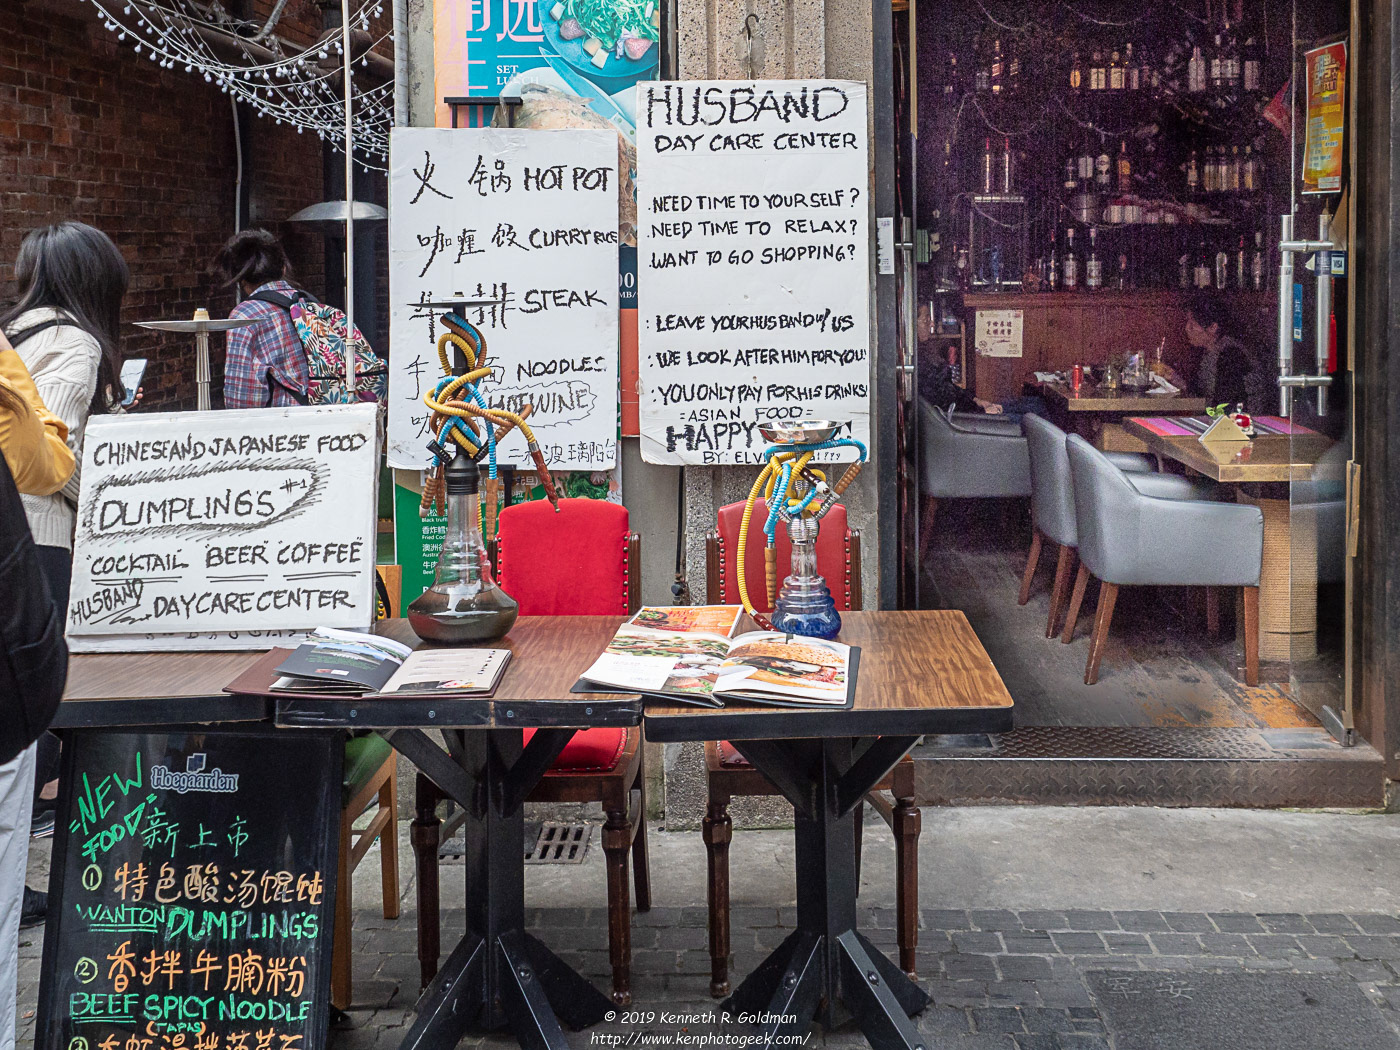 SET
火 锅 HOT POT
咖 喱 饭 CURRY RICE
牛 排 STEAK
手 面 NOODLES
HOTWINE
HUSBAND
DAY CARE CENTER
.NEED TIME TO YOURSELF?
.NEED TIME TO RELAX?
.WANT TO GO SHOPPING?
: LEAVE YOUR HUSBAND W/ US
: WE LOOK AFTER HIM FOR YOU!
: YOU ONLY PAY FOR HIS DRINKS!
=ASIAN FOOD=
HAPPY
BY: ELV
CHINESE AND JAPANESE FOOD
DUMPLINGS #1
"COCKTAIL" "BEER" "COFFEE"
HUSBAND DAY CARE CENTER
Hoegaarden
=NEW
FOOD= 新上市
① 特色酸汤馄饨
WANTON DUMPLING'S
② 香拌牛腩粉
BEEF SPICY NOODLE
(TAPAS)
③
© 2019 Kenneth R. Goldman
http://www.kenphotogeek.com/